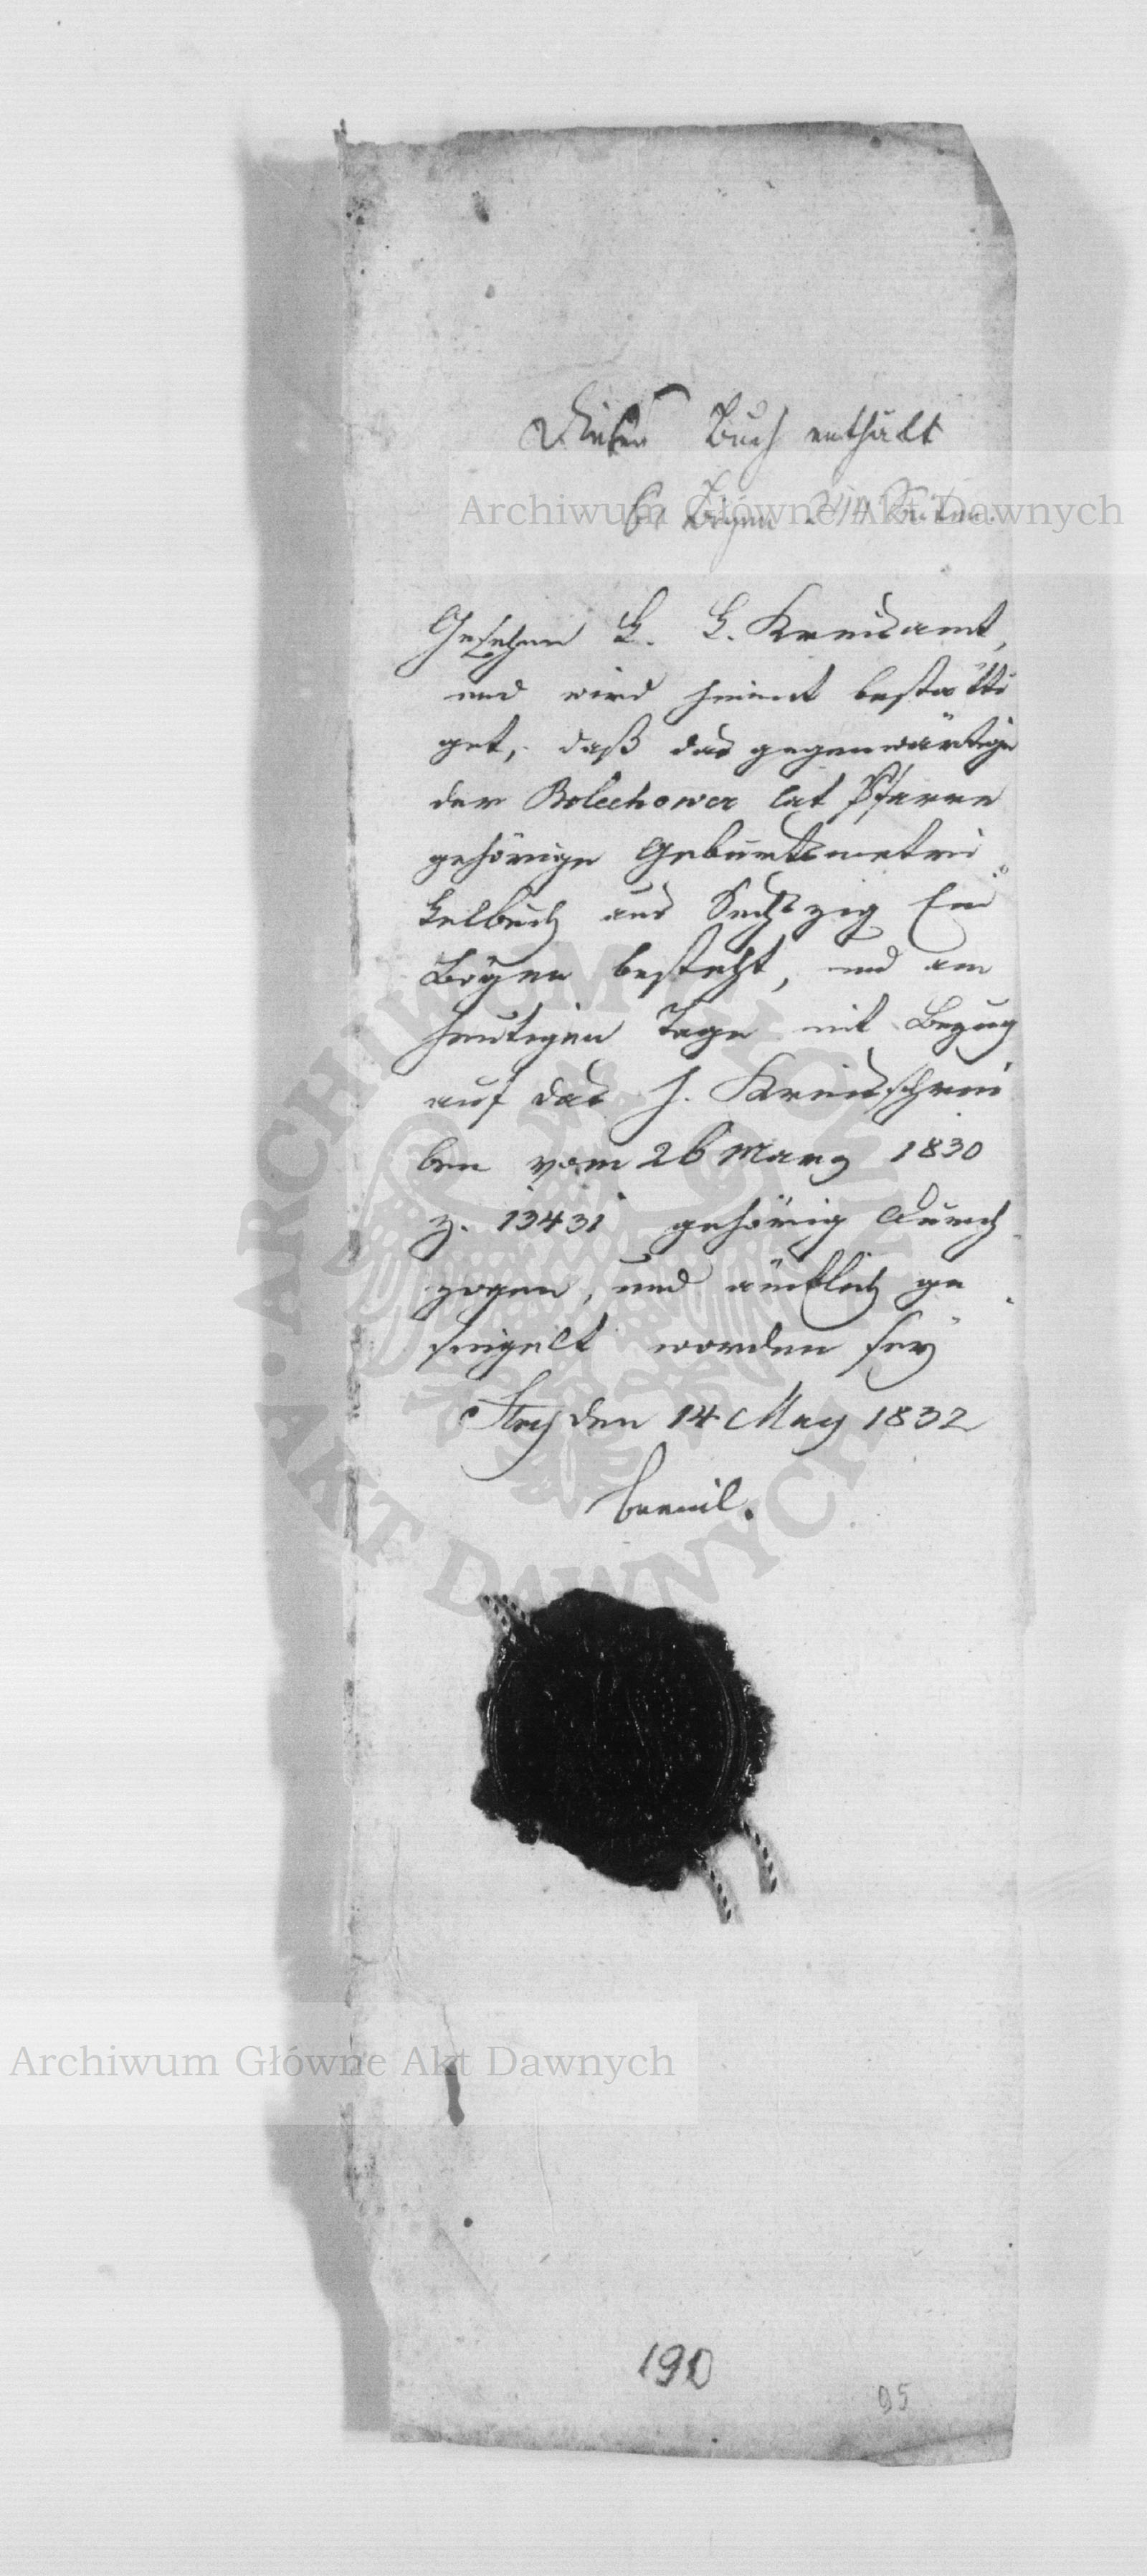 Dieses Buch enthält
61 Bögen Seiten.
Gesehen K. K. Kreisamt,
und wird hiemit bestätti
get, daß das gegenwärtige
der Bolechower lat Pfarre
gehörige Geburtsmatri
kelbuch aus Sechszig Ein
Bögen besteht, und am
heutigen Tage mit Bezug
auf das h. Kreisschrei
ben vom 26 März 1830
Z. 13431 gehörig durch
zogen, und ämtlich ge
siegelt worden sey
Stry den 14 May 1832
190
95
Archiwum Główne Akt Dawnych
Archiwum Główne Akt Dawnych
ARCHIWUM GŁÓWNE AKT DAWNYCH